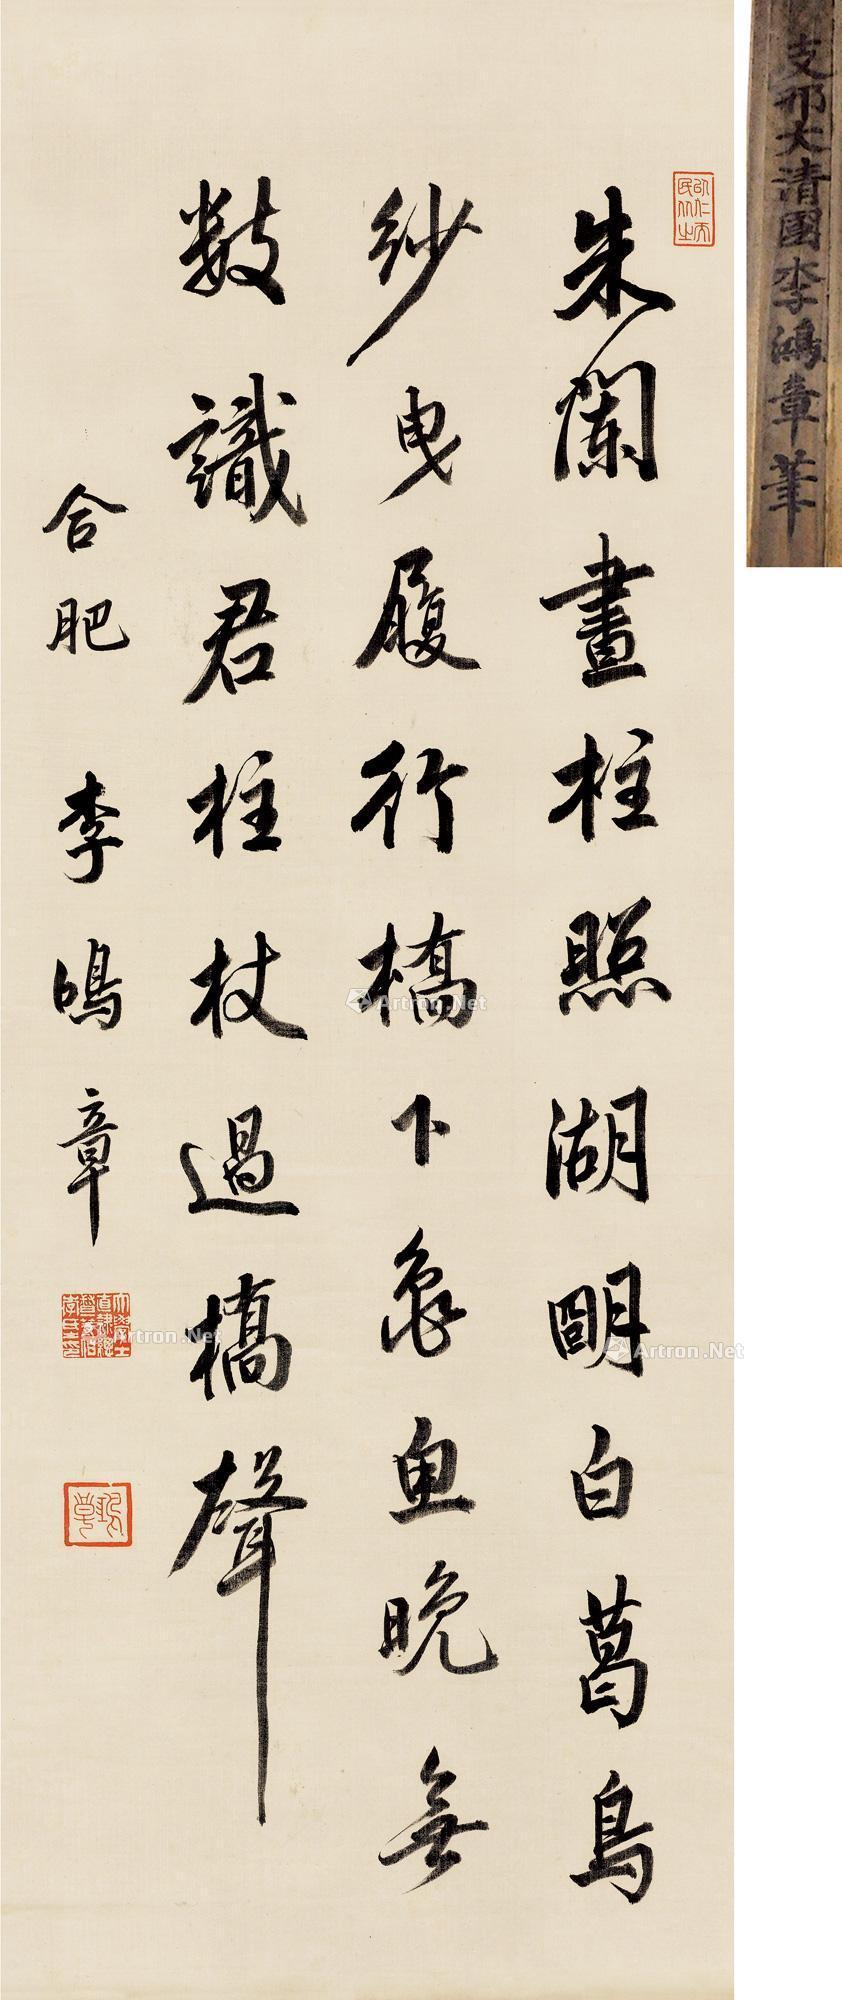 朱闌畫柱照湖明白葛烏
紗曳履行橋下龜魚晚無
數識君柱杖過橋聲
合肥 李鴻章
支那大清國李鴻章筆
Artron.Net
Artron.Net
Artron.Net